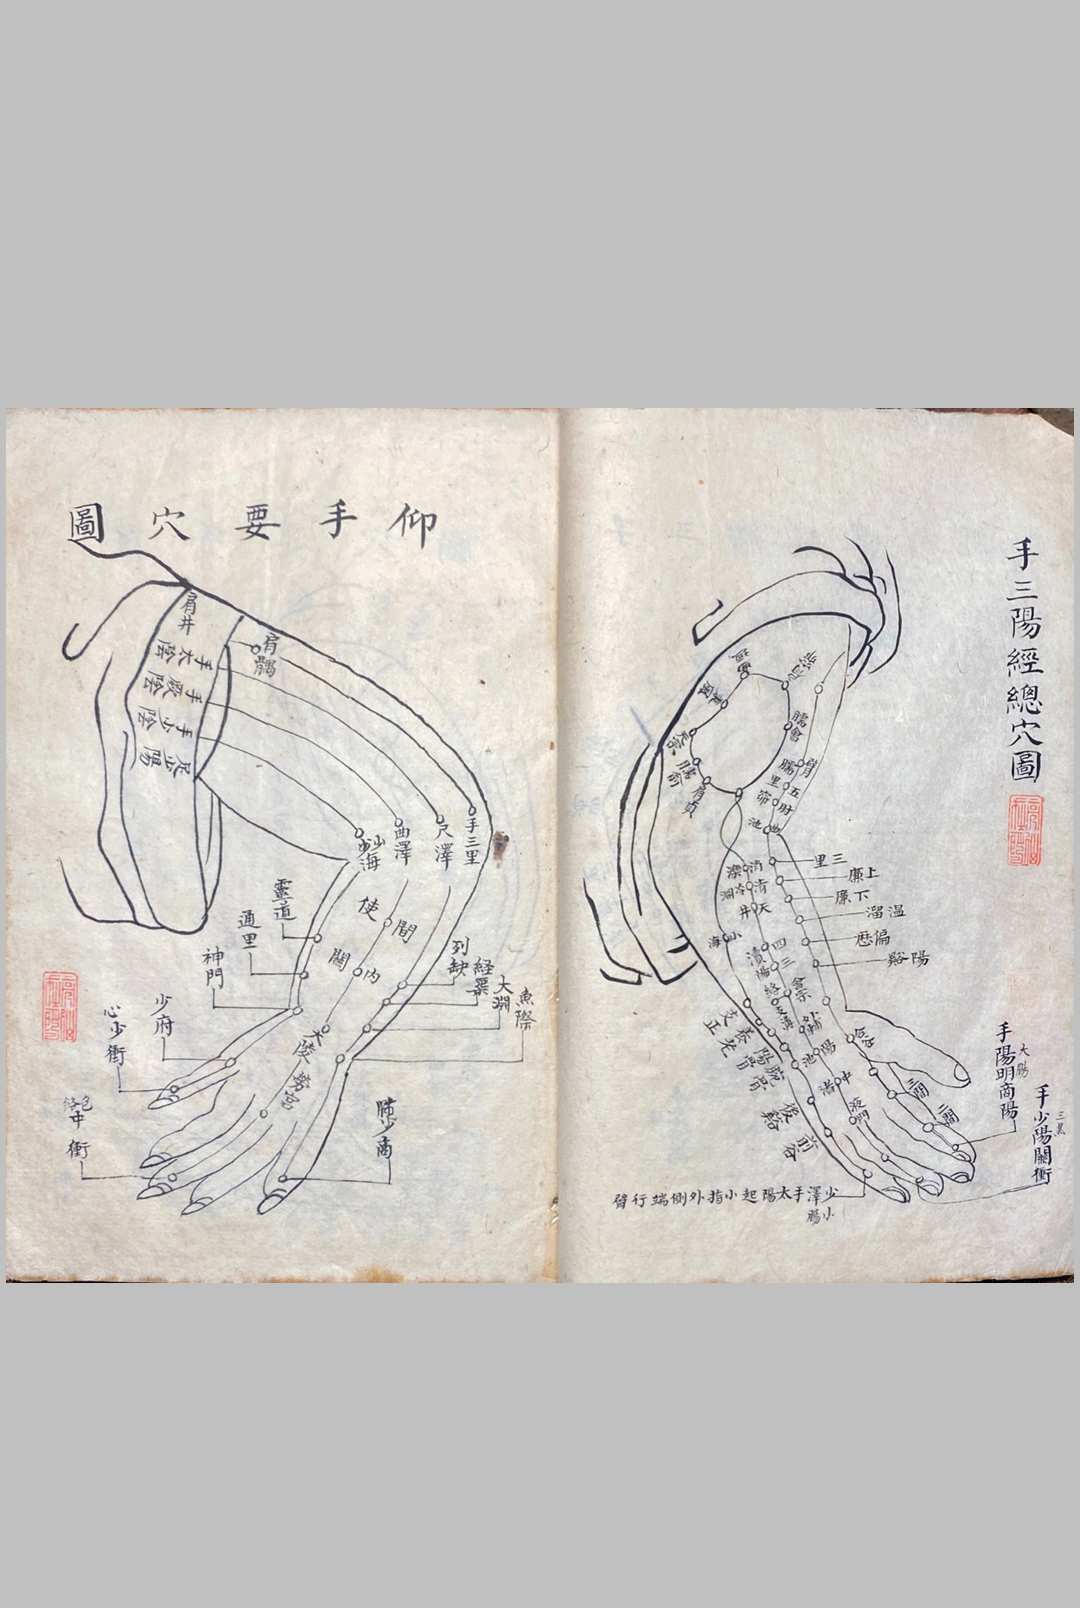 手三陽經總穴圖
臑會
臂臑
五里
肘窌
曲池
臑俞
肩貞
三里
上廉
下廉
温溜
偏歷
陽谿
消濼
清冷淵
天井
小海
四瀆
三陽絡
會宗
支溝
外關
支正
養老
陽池
陽谷
腕骨
中渚
液門
後谿
前谷
合谷
三間
二間
手陽明商陽
大腸
手少陽關衝
三焦
少澤手太陽起小指外側端行臂
小腸
仰手要穴圖
肩井
肩髃
手太陰
手厥陰
手少陰
足少陽
手三里
尺澤
曲澤
少海
靈道
通里
神門
少府
心少衝
間使
內關
大陵
勞宮
列缺
経渠
大淵
魚際
肺少商
包絡中衝